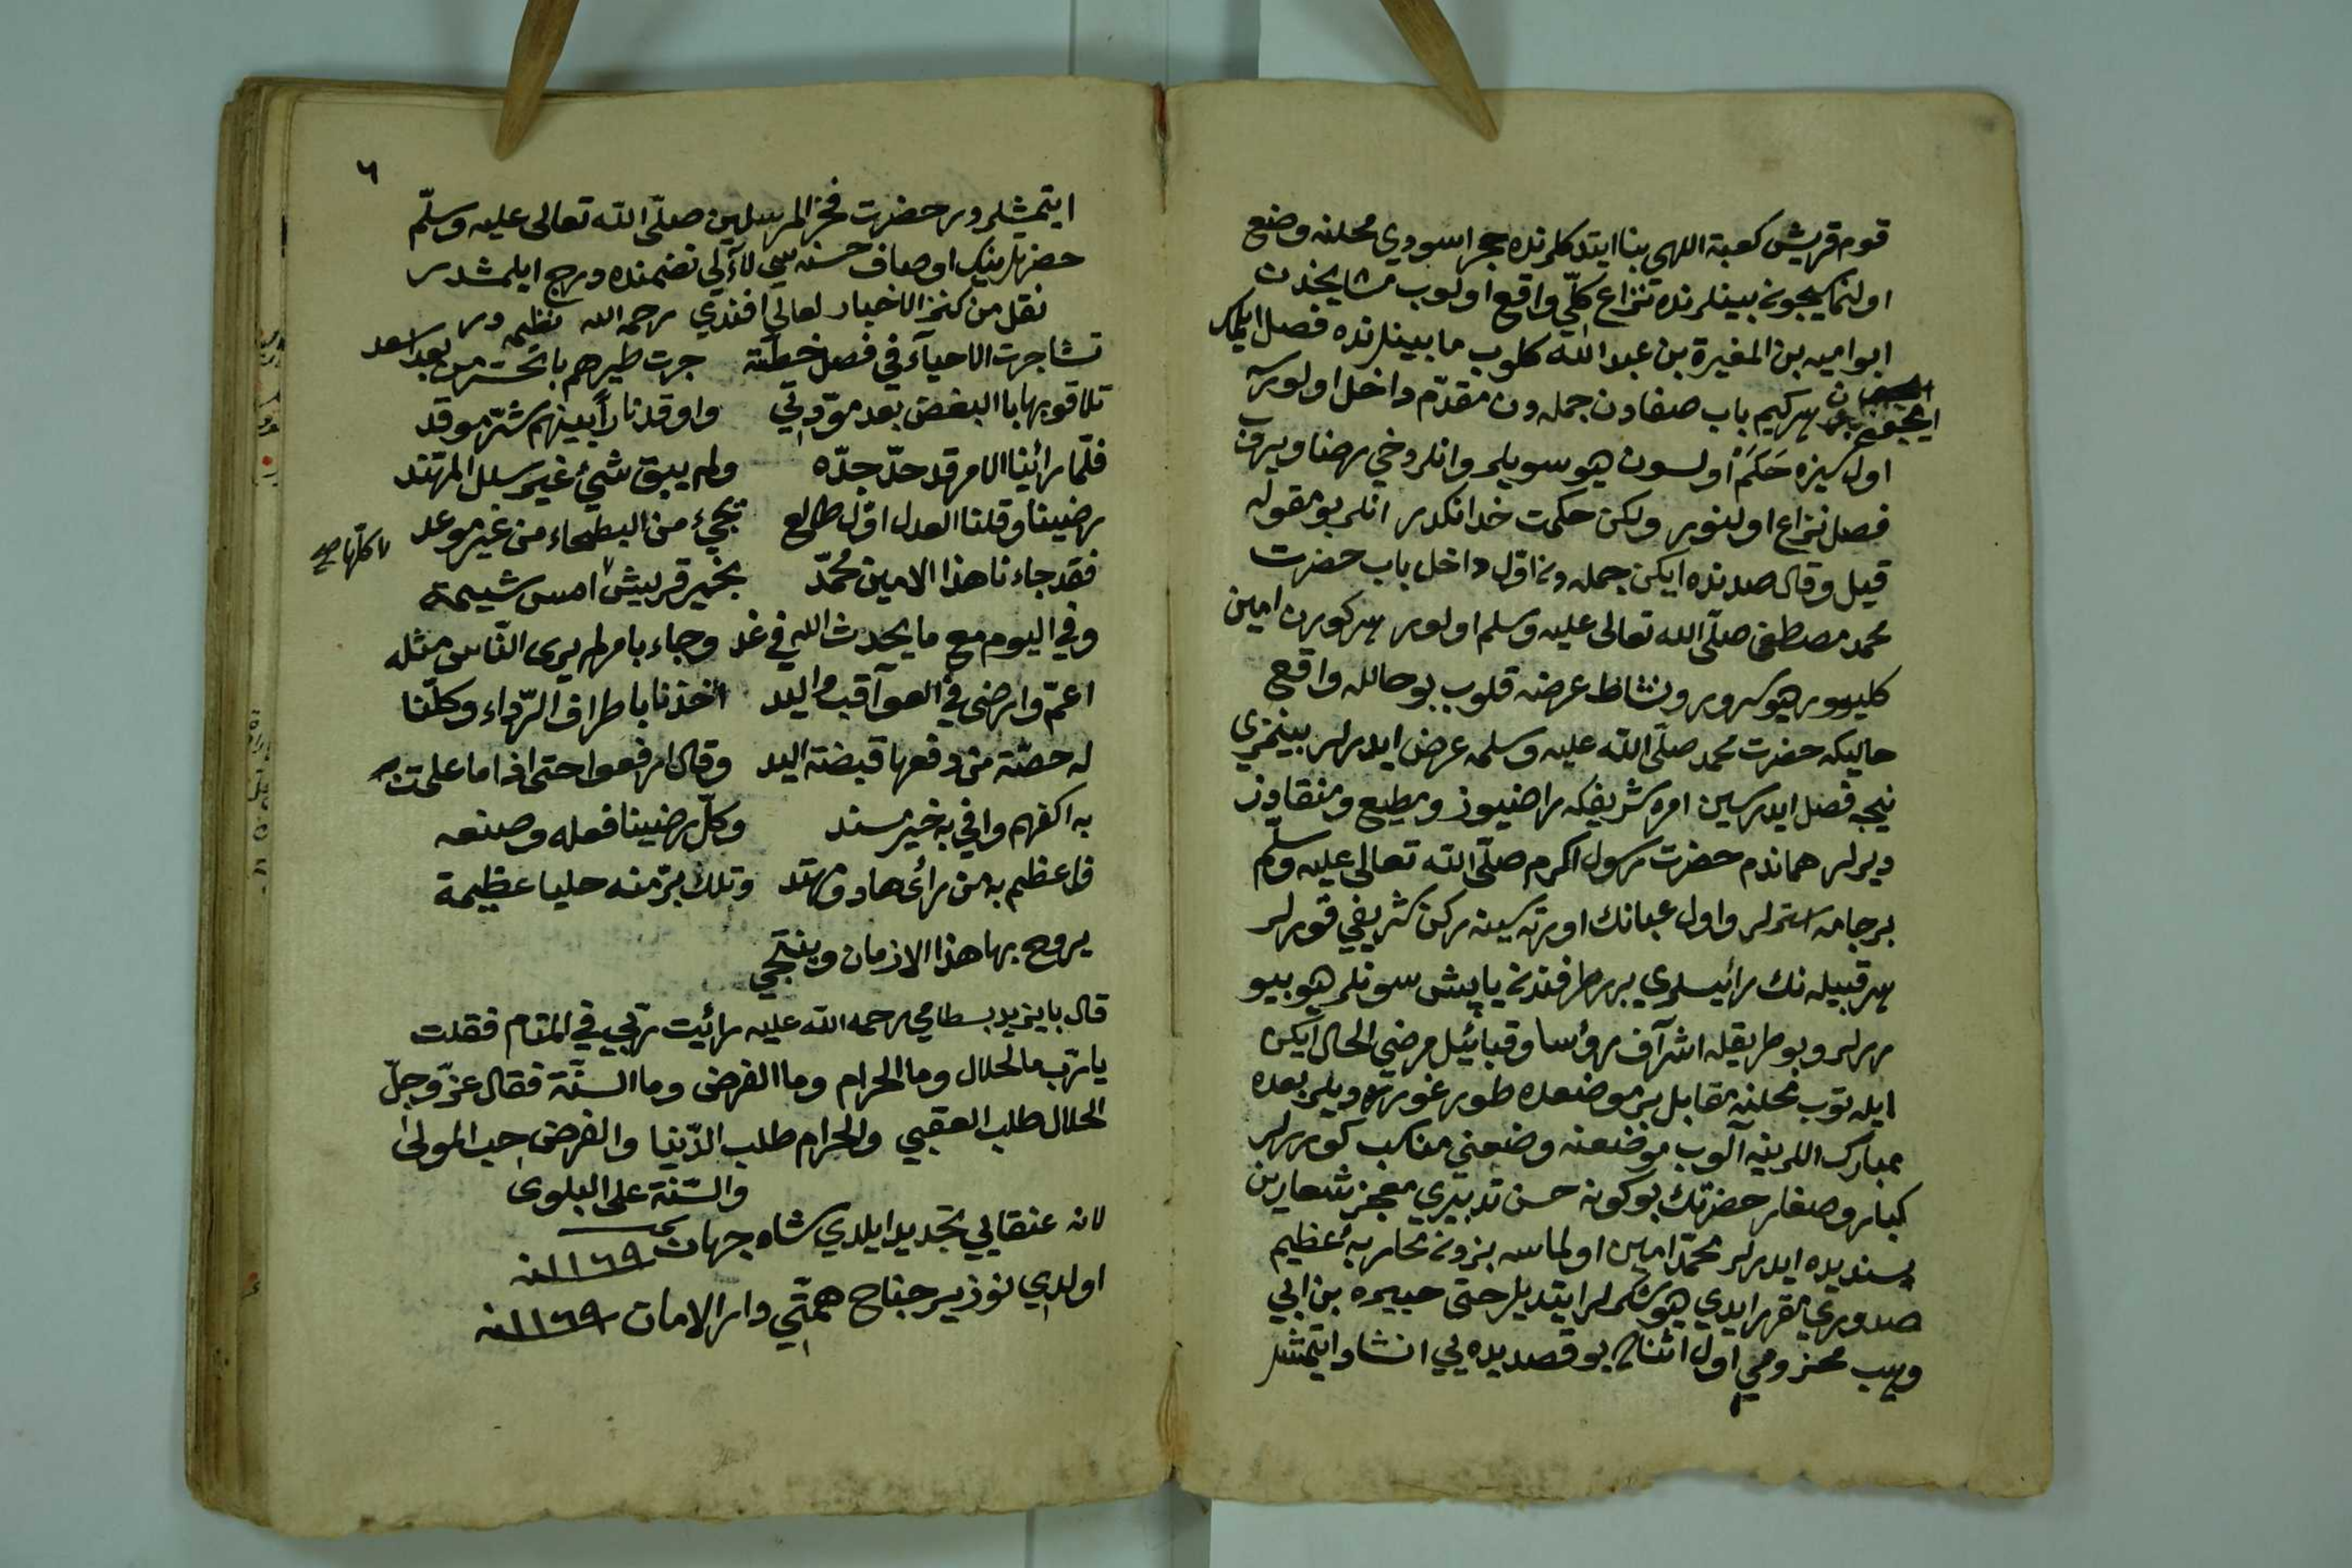 قوم قريش كعبة اللهی بنا ايتدكلرنده حجر اسودی محلنه وضع
اولنمق ايچون بينلرنده نزاع كلّی واقع اولوب مشايخدن
ابو اميه بن المغيرة بن عبد الله كلوب ما بينلرنده فصل ايلمك
ايچون هر كيم باب صفادن جمله دن مقدّم داخل اولورسه
اول سزه حَكَم اولسون ديو سويلر وانلر دخی رضا ويروب
فصل نزاع اولنور ولكن حكمت خدانكدر انلر بو مقوله
قيل وقال صددنده ايكن جمله دن اوّل داخل باب حضرت
محمد مصطفی صلّی الله تعالی عليه وسلم اولور هر كورن امين
كليور ديو سرور ونشاط عرضه قلوب بو حالله واقع
حاليكه حضرت محمد صلّی الله عليه وسلمه عرض ايدرلر بينمزی
نيجه فصل ايدرسين امر شريفكه راضيوز ومطيع ومنقادوز
ديرلر هماندم حضرت رسول اكرم صلّی الله تعالی عليه وسلّم
بر جامه استرلر واول عبانك اورته سينه ركن شريفی قورلر
هر قبيله نك رئيسلری برر طرفندن ياپشسونلر ديو بيو
ررلر وبو طريقله اشراف رؤسا وقبائل مرضی الحال ايكن
ايله توب محلنه مقابل بر موضعده طورغورتديلر بعده
مبارك اللرينه آلوب موضعنه وضعنی مناسب كوررلر
كبار وصغار حضرتك بو كونه حسن تدبيری معجز شعارين
پسنديده ايدرلر محمّد امين اولماسه بزدن محاربهٔ عظيم
صدوری مقرر ايدی ديو شكرلر ايتديلر حتی هبيره بن ابی
وهب مخزومی اول اثناده بو قصيده يی انشاد ايتمشلر
٦
ايتمشلردر حضرت فخر المرسلين صلّی الله تعالی عليه وسلّم
حضرتلرينك اوصاف حسنه سی لآلی تضمنده درج ايلمشدر
نقل من كنز الاخبار لعالی افندی رحمه الله نظيمی در
تشاجرت الاحيآء فی فصل خطّة جرت طيرهم بالنحس من بعد اسعد
تلاقوا بها بالبغض بعد مودّتی واوقد ناراً بينهم شرّ موقد
فلمّا رائينا الامر قد حدّ جدّه ولم يبق شئ غير سلل المهتند
رضينا وقلنا العدل اوّل طالع يجئ من البطحاء من غير موعد
فقد جاءنا هذا الامين محمّد بخير قريش امس شيمة
كلّها صح
وفی اليوم مع ما يحدث الله فی غد وجاء بامر لم يری النّاس مثله
اعمّ وارضی فی العوآقب واليد اخذنا باطراف الرّداء وكلّنا
له حصّة من رفعها قبضة اليد وقال ارفعوا حتی اذا ما علی ت به
به اكفهم وافی به خير مسند وكلّ رضينا فعله وصنعه
فاعظم به من رأی هاد ومهتد وتلك يدّ منه علينا عظيمة
يروح بها هذا الازمان وينتجی
قال بايزيد بسطامی رحمه الله عليه رأيت ربّی فی المنام فقلت
يا ربّ ما الحلال وما الحرام وما الفرض وما السنّة فقال عزّ وجلّ
الحلال طلب العقبی والحرام طلب الدّنيا والفرض حب المولی
والسّنة علی البلوی
لانه عنقايی تجديد ايلدی شاه جهان سنه ١١٦٩
اولدی نوذير جناح همتی دار الامان سنه ١١٦٩